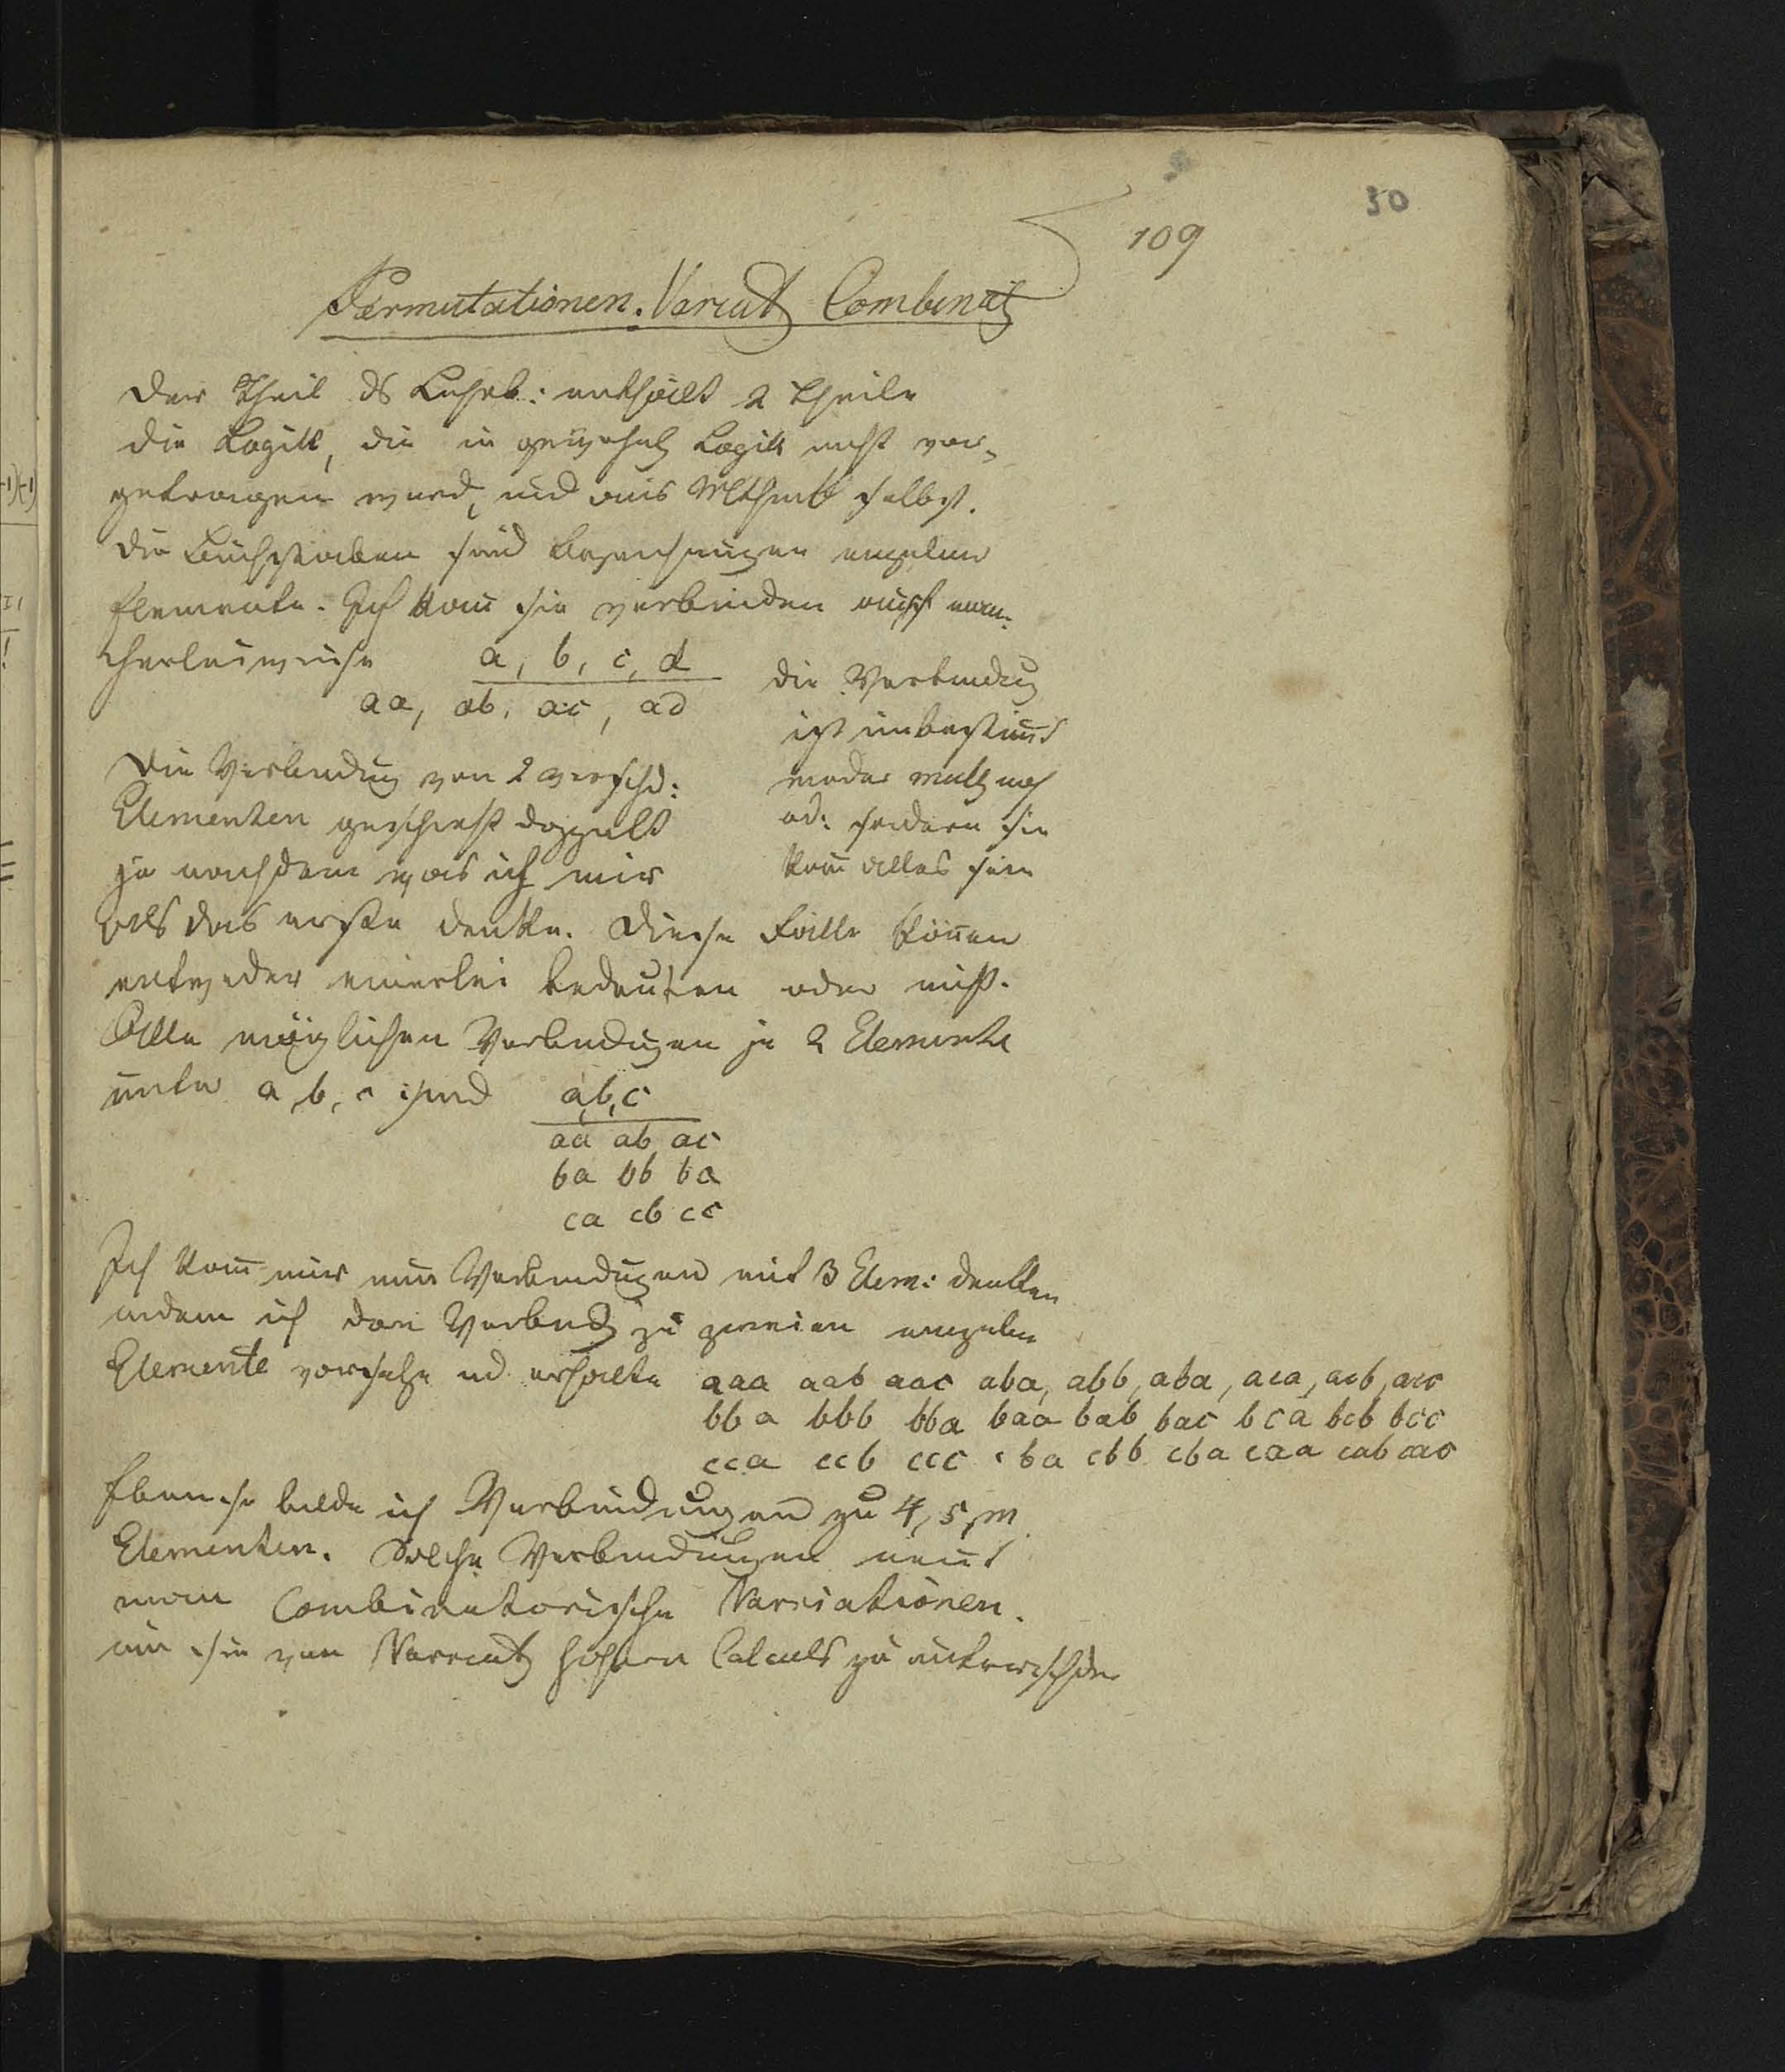 30
109
Permutationen. Variat Combinat
Der Theil ds Lehrb: enthält 2 Theile
die Logik, die in gewöhnl Logik nicht vor-
getragen wird, und aus Mathmt selbst.
Die Buchstaben sind Bezeichnungen einzelner
Elemente. Ich kann sie verbinden auf man-
cherleiweise a, b, c, d
aa, ab, ac, ad
die Verbindung
ist unbestimmt
weder mult noch
ad: sondern sie
kann alles sein
Die Verbindung von 2 verschd:
Elementen geschieht doppelt
je nachdem was ich mir
als das erste denke. Diese Fälle können
entweder einerlei bedeuten oder nicht.
Alle möglichen Verbindungen je 2 Elemente
unter a, b, c sind a,b,c
aa ab ac
ba bb ba
ca cb cc
Ich kann mir nun Verbindungen mit 3 Elem: denken
indem ich den Verbindg zu zweien einzelne
Elemente vorsetze und erhalte aaa aab aac aba, abb, aba, aca, acb, acc
bba bbb bba baa bab bac bca bcb bcc
cca ccb ccc cba cbb cba caa cab cac
Eben so bilde ich Verbindungen zu 4, 5, m
Elementen. Solche Verbindungen nennt
man Combinatorische Variationen.
um sie von Variat höhern Calculs zu unterscheiden